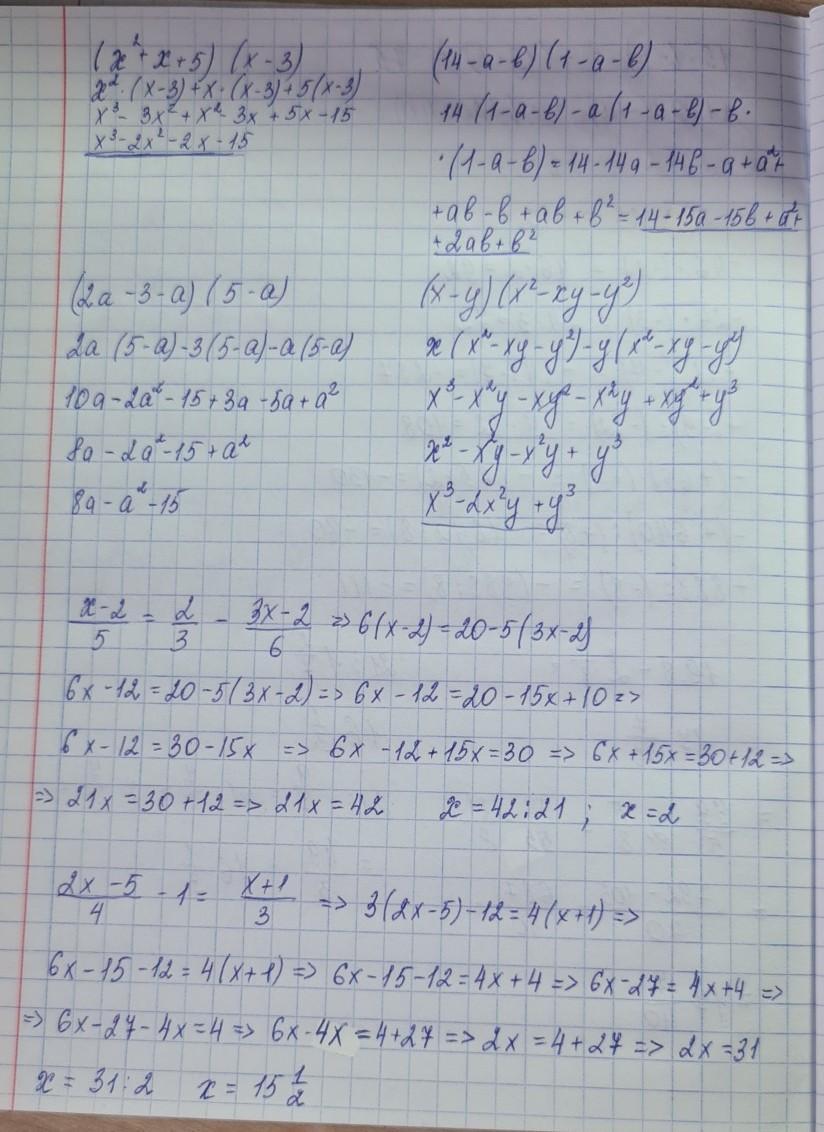 (x²+x+5)(x-3)
x²·(x-3)+x·(x-3)+5(x-3)
x³-3x²+x²-3x+5x-15
x³-2x²-2x-15
(14-a-b)(1-a-b)
14(1-a-b)-a(1-a-b)-b·
·(1-a-b)=14-14a-14b-a+a²+
+ab-b+ab+b²=14-15a-15b+a²+
+2ab+b²
(2a-3-a)(5-a)
2a(5-a)-3(5-a)-a(5-a)
10a-2a²-15+3a-5a+a²
8a-2a²-15+a²
8a-a²-15
(x-y)(x²-xy-y²)
x(x²-xy-y²)-y(x²-xy-y²)
x³-x²y-xy²-x²y+xy²+y³
x²-x²y-x²y+y³
x³-2x²y+y³
(x-2)/5 = 2/3 - (3x-2)/6 => 6(x-2)=20-5(3x-2)
6x-12=20-5(3x-2)=> 6x-12=20-15x+10=>
6x-12=30-15x => 6x-12+15x=30 => 6x+15x=30+12=>
=> 21x=30+12=> 21x=42 x=42:21; x=2
(2x-5)/4 -1= (x+1)/3 => 3(2x-5)-12=4(x+1)=>
6x-15-12=4(x+1)=> 6x-15-12=4x+4=> 6x-27=4x+4 =>
=> 6x-27-4x=4=> 6x-4x=4+27=> 2x=4+27=> 2x=31
x=31:2 x=15 1/2